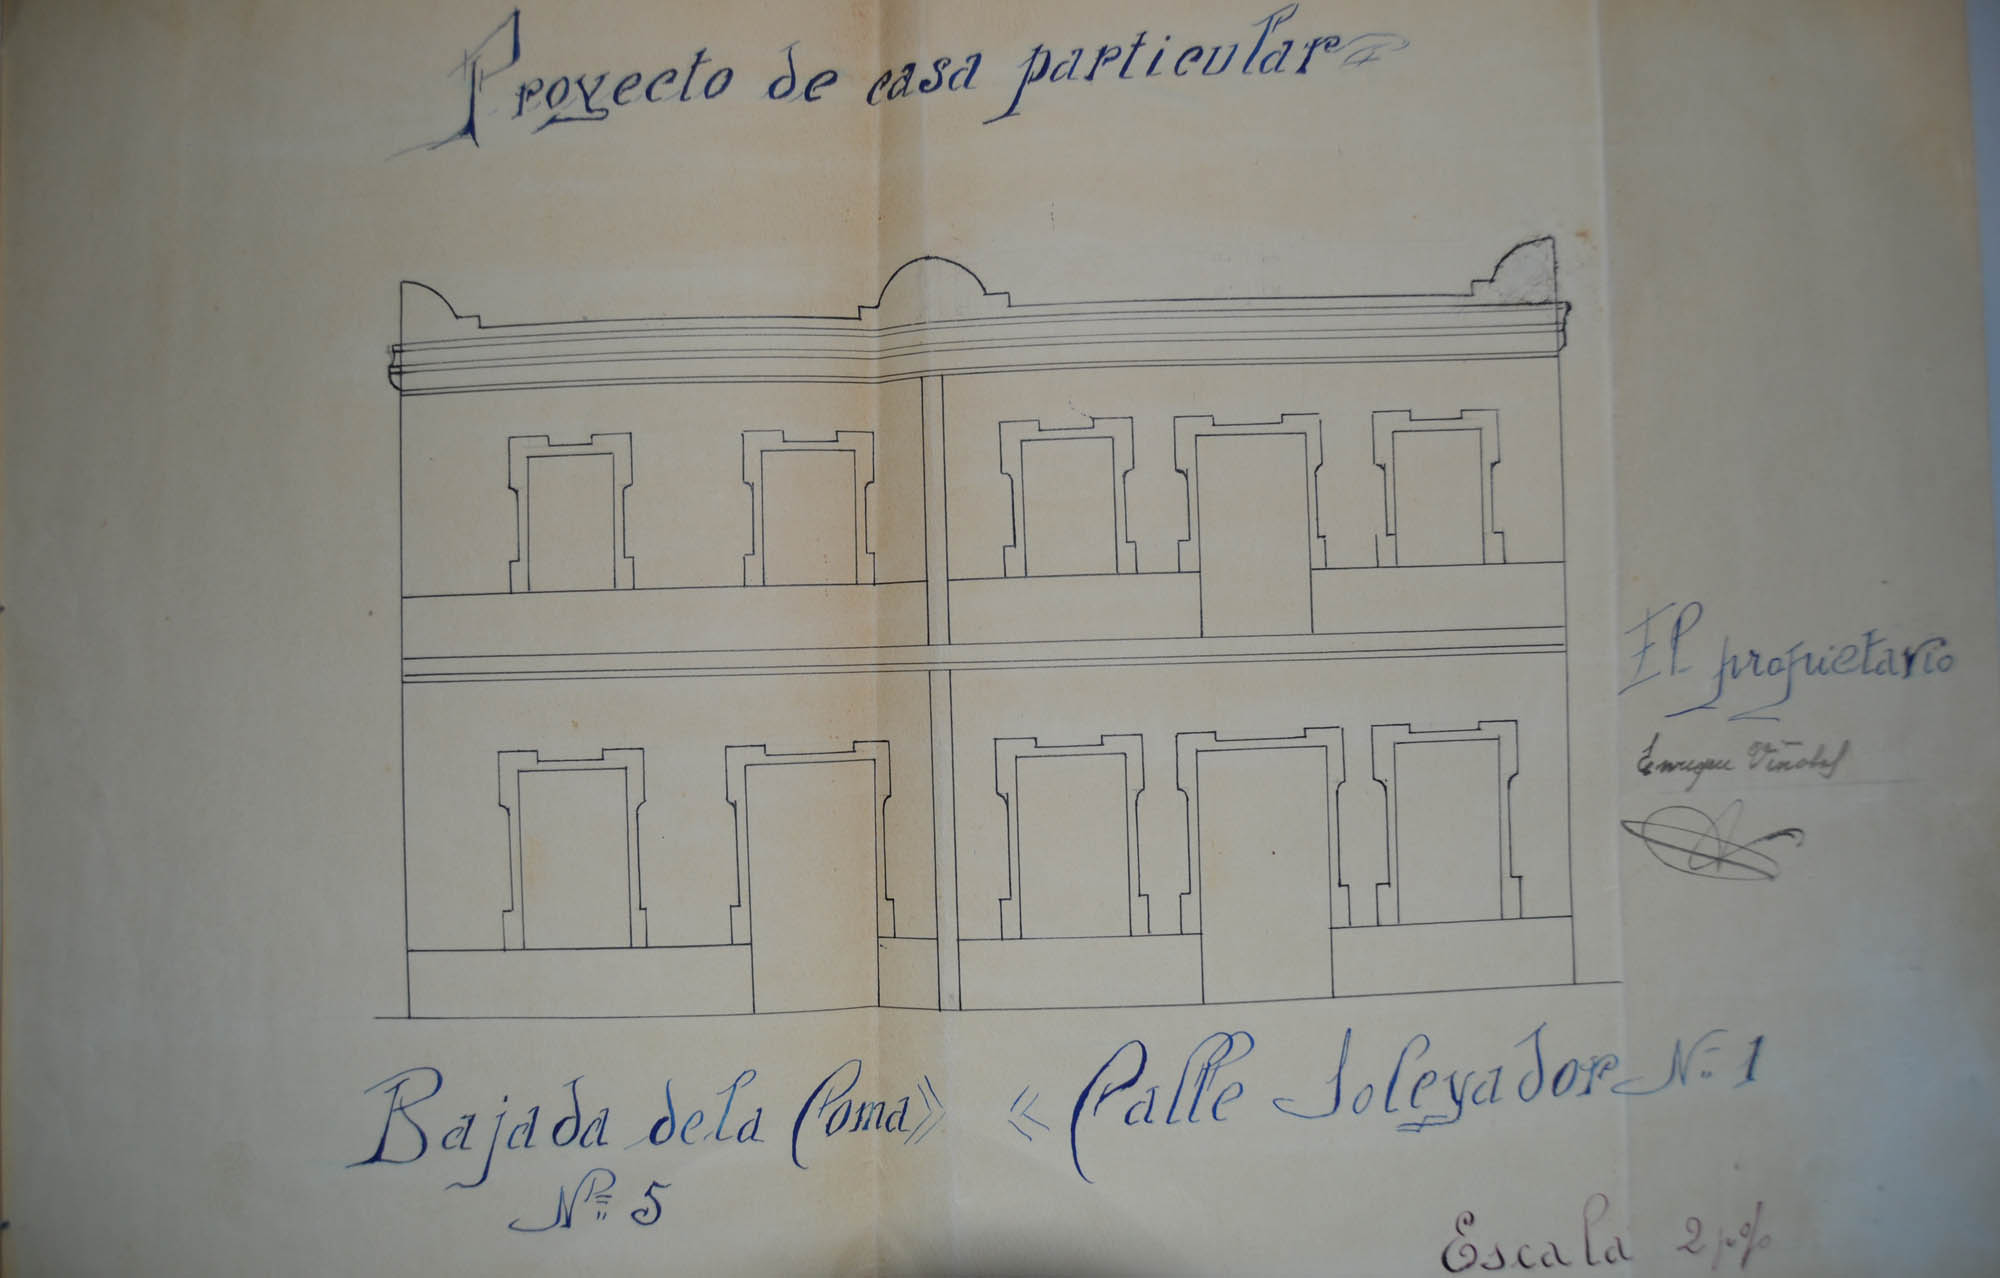 Proyecto de casa particular
El propietario
Enrique Viñolas
Bajada de la Coma» «Calle Soleyador Nº 1
Nº 5
Escala 2 p%